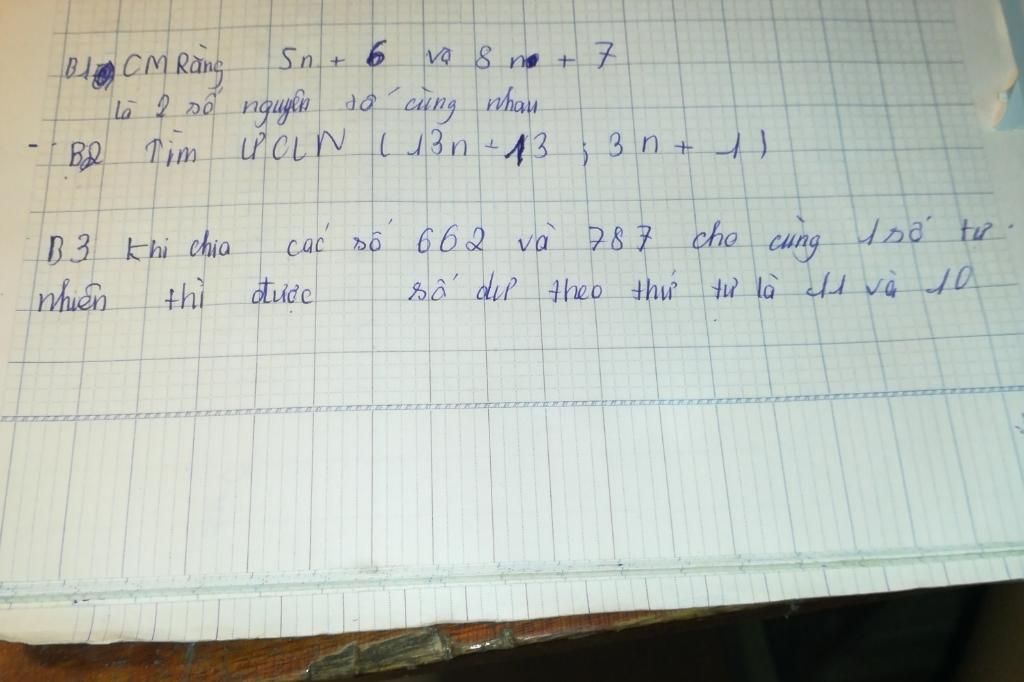 B1 CM Rằng 5n + 6 và 8n + 7
là 2 số nguyên tố cùng nhau
- B2 Tìm ƯCLN ( 13n + 13 ; 3n + 1 )
B3 Khi chia các số 662 và 787 cho cùng 1 số tự
nhiên thì được số dư theo thứ tự là 11 và 10